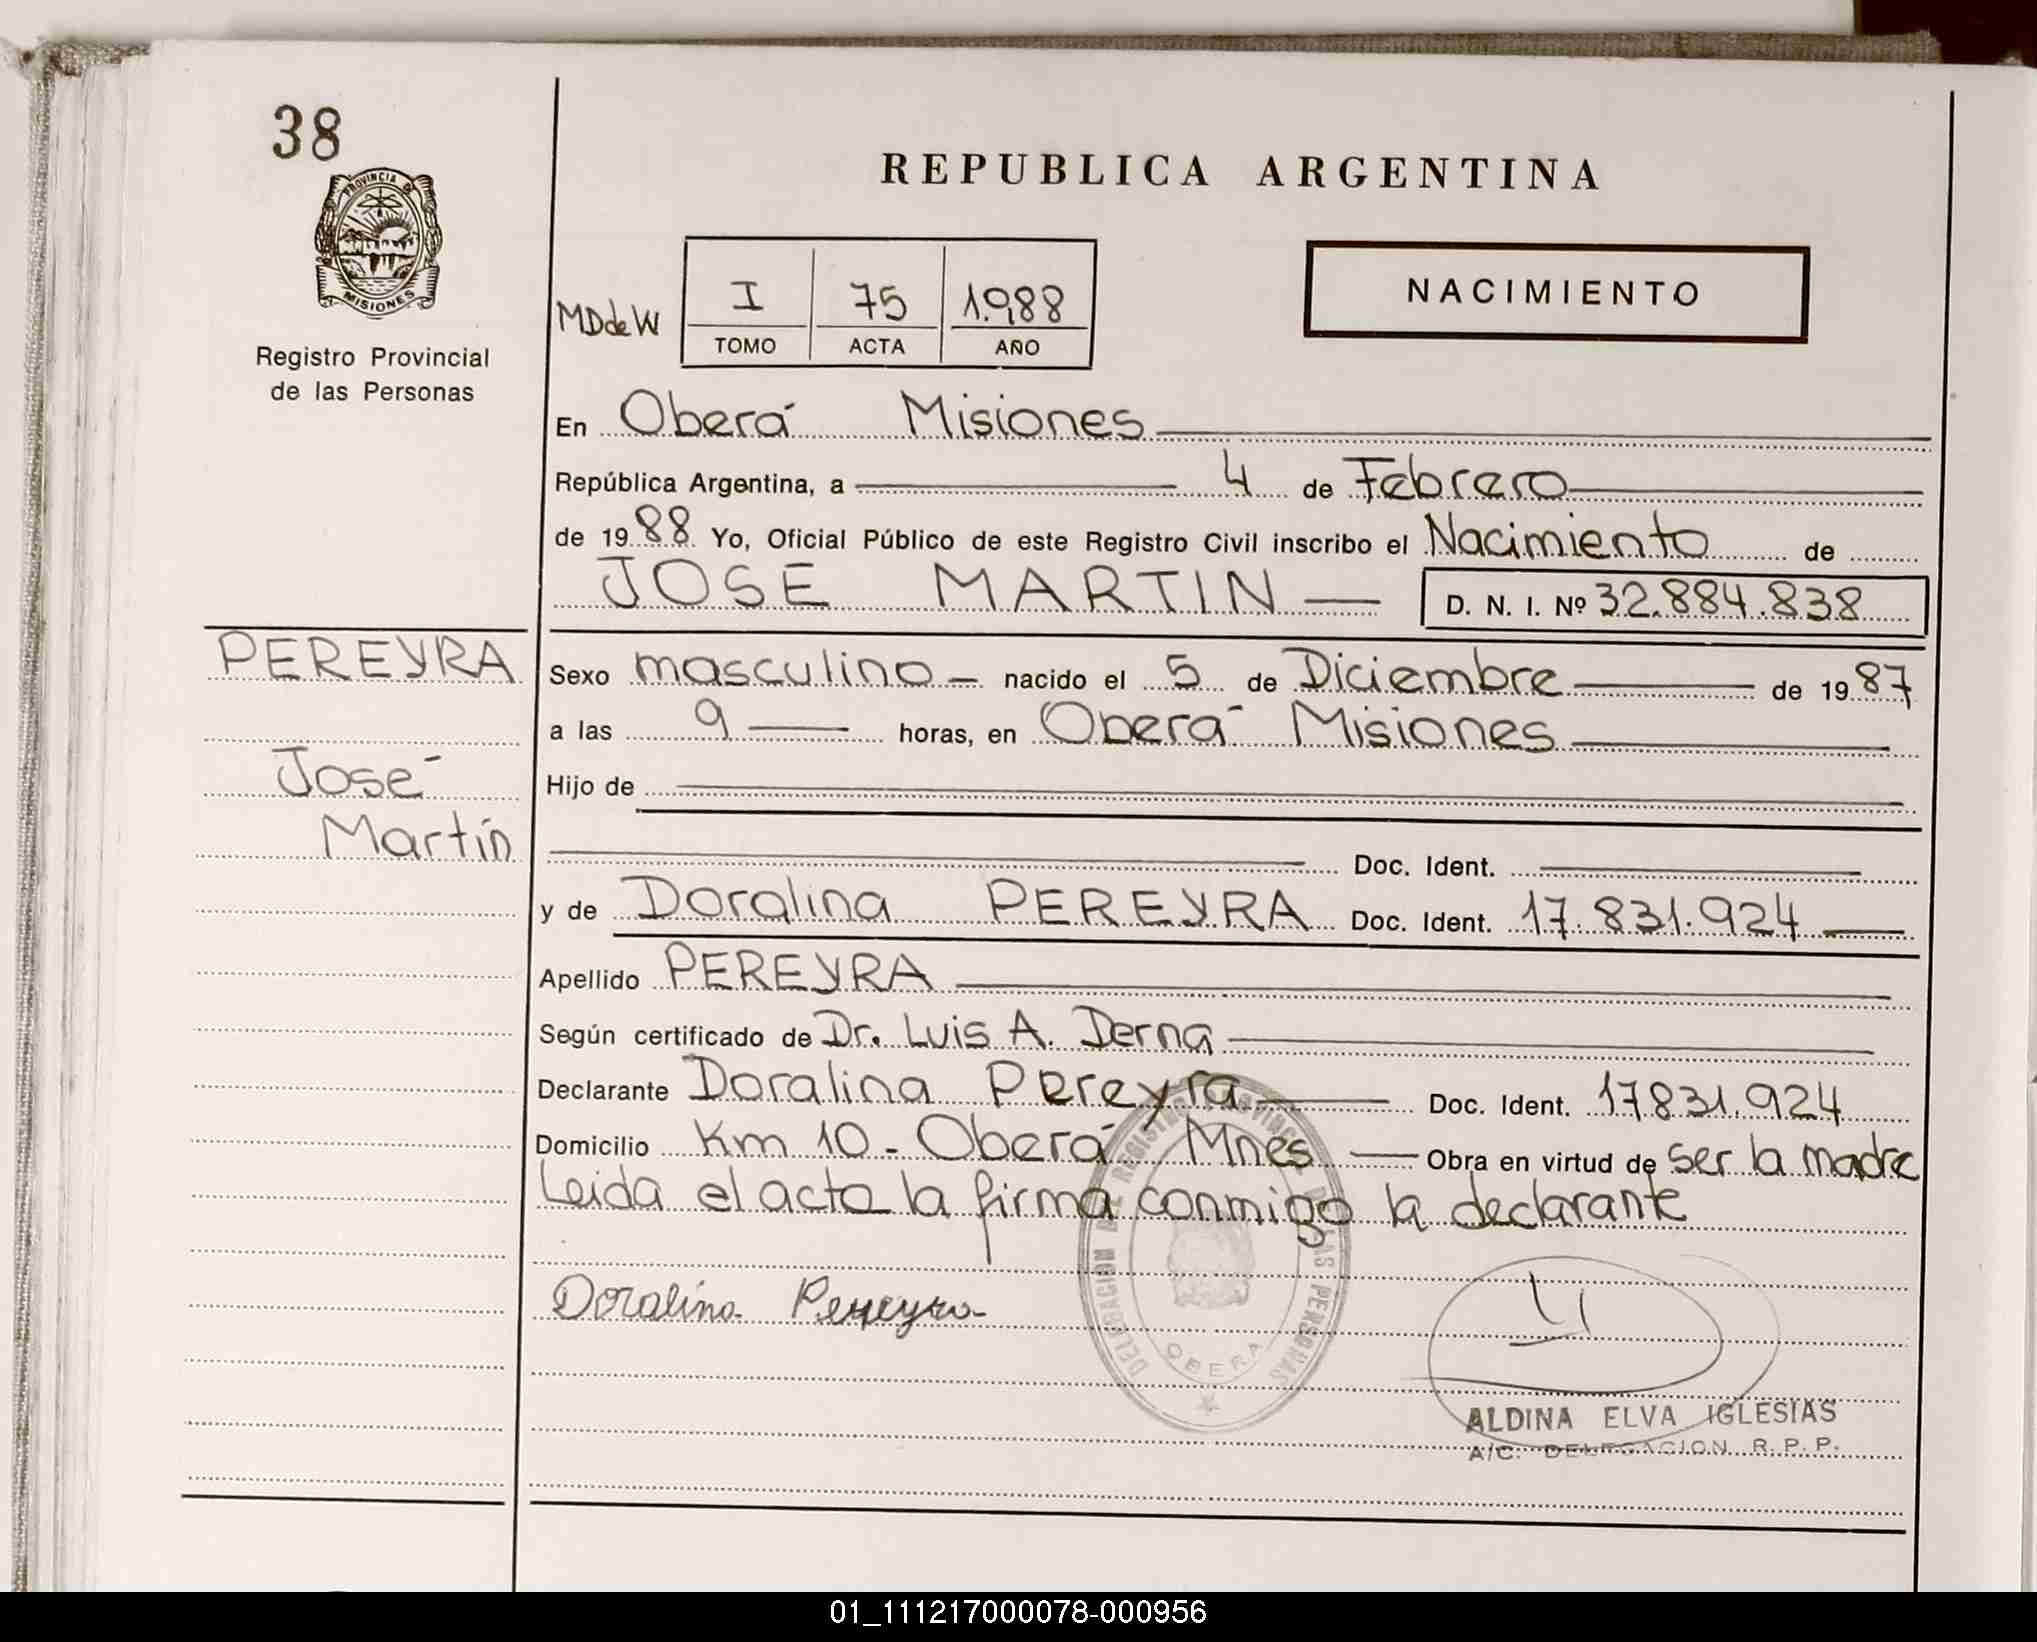 38
PROVINCIA DE
MISIONES
Registro Provincial
de las Personas
REPUBLICA ARGENTINA
MDdeW
I 75 1.988
TOMO ACTA AÑO
NACIMIENTO
En Oberá Misiones
República Argentina, a 4 de Febrero
de 1988 Yo, Oficial Público de este Registro Civil inscribo el Nacimiento de
JOSE MARTIN D. N. I. Nº 32.884.838
PEREYRA
José
Martín
Sexo masculino nacido el 5 de Diciembre de 1987
a las 9 horas, en Oberá Misiones
Hijo de
Doc. Ident.
y de Doralina PEREYRA Doc. Ident. 17.831.924
Apellido PEREYRA
Según certificado de Dr. Luis A. Derna
Declarante Doralina Pereyra Doc. Ident. 17831.924
Domicilio Km 10 - Oberá Mnes Obra en virtud de ser la madre
Leida el acta la firma conmigo la declarante
Doralina Pereyra
DELEGACION DEL REGISTRO PROVINCIAL DE LAS PERSONAS
OBERA
ALDINA ELVA IGLESIAS
A/C. DELEGACION R. P. P.
01_111217000078-000956